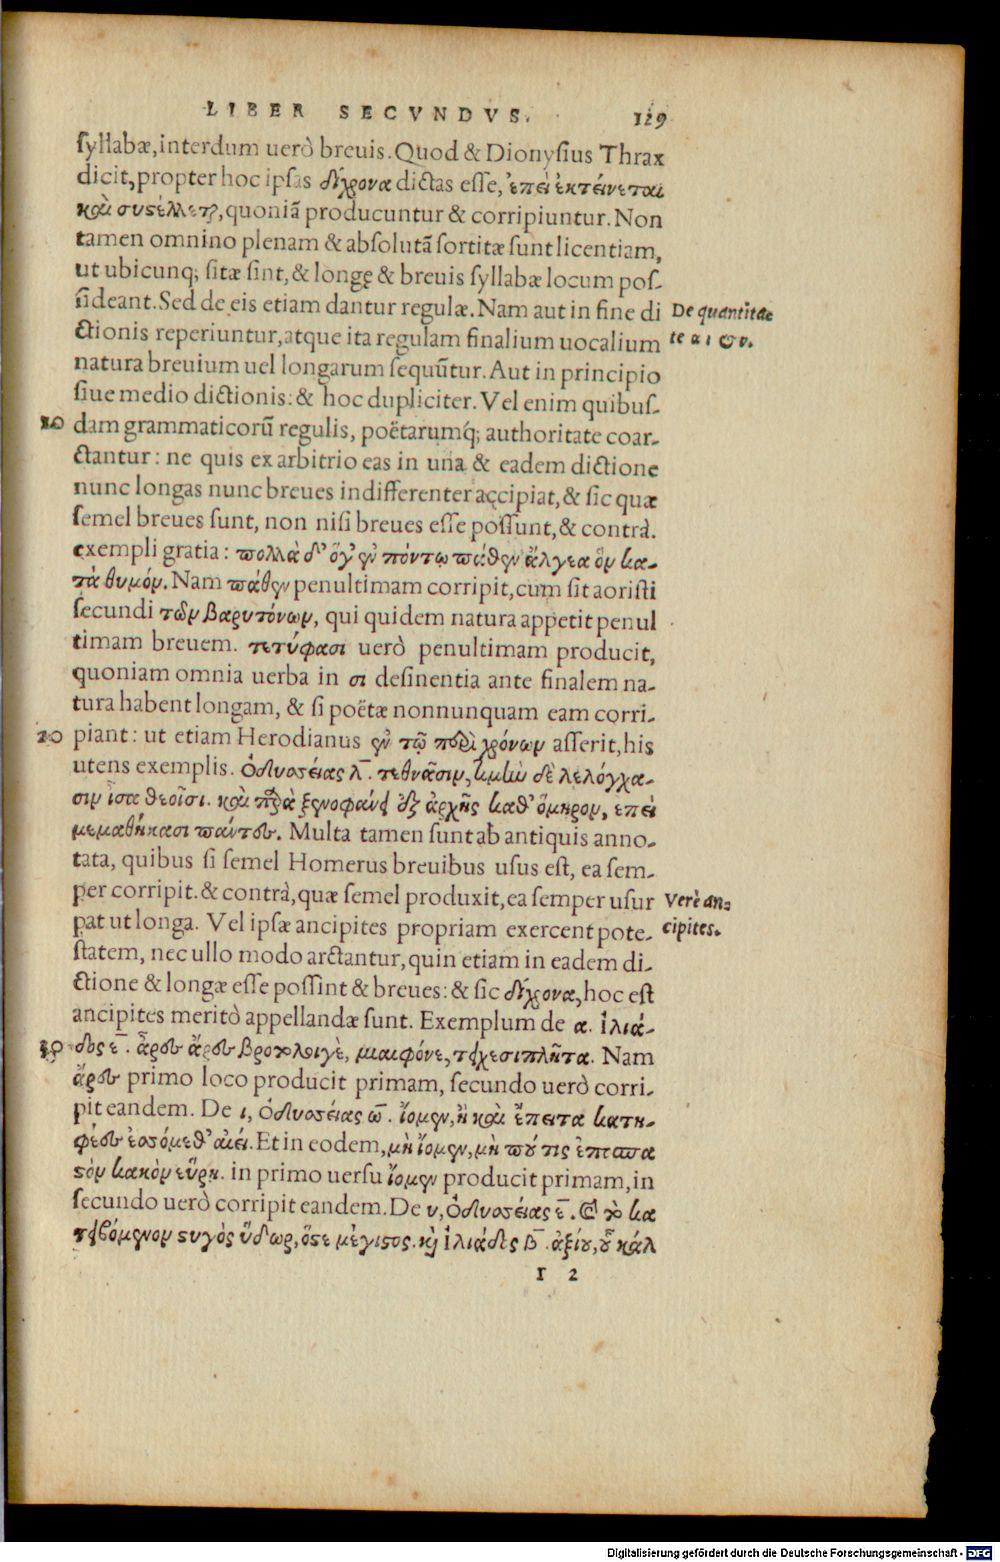 LIBER SECVNDVS. 129
syllabæ, interdum uerò breuis. Quod & Dionysius Thrax
dicit, propter hoc ipsas δίχρονα dictas esse, ἐπεὶ ἐκτείνεται
καὶ συστέλλεται, quoniā producuntur & corripiuntur. Non
tamen omnino plenam & absolutā sortitæ sunt licentiam,
ut ubicunq; sitæ sint, & longę & breuis syllabæ locum pos-
sideant. Sed de eis etiam dantur regulæ. Nam aut in fine di
De quantita-
ctionis reperiuntur, atque ita regulam finalium uocalium
te α ι & υ.
natura breuium uel longarum sequūtur. Aut in principio
siue medio dictionis: & hoc dupliciter. Vel enim quibus-
10 dam grammaticorū regulis, poëtarumq́; authoritate coar-
ctantur: ne quis ex arbitrio eas in una & eadem dictione
nunc longas nunc breues indifferenter accipiat, & sic quæ
semel breues sunt, non nisi breues esse possunt, & contrà.
exempli gratia: πολλὰ δ' ὅγ' ἐν πόντῳ πάθεν ἄλγεα ὃν κα-
τὰ θυμόν. Nam πάθεν penultimam corripit, cum sit aoristi
secundi τῶν βαρυτόνων, qui quidem natura appetit penul
timam breuem. τετύφασι uerò penultimam producit,
quoniam omnia uerba in σι desinentia ante finalem na-
tura habent longam, & si poëtæ nonnunquam eam corri-
20 piant: ut etiam Herodianus ἐν τῷ περὶ χρόνων asserit, his
utens exemplis. Ὀδυσσείας λ̄. τεθνᾶσιν, τιμὴν δὲ λελόγχα-
σιν ἶσα θεοῖσι. καὶ παρὰ ξενοφάνει ἐξ ἀρχῆς καθ' ὅμηρον, ἐπεὶ
μεμαθήκασι πάντες. Multa tamen sunt ab antiquis anno-
tata, quibus si semel Homerus breuibus usus est, ea sem-
per corripit. & contrà, quæ semel produxit, ea semper usur
Verè an-
pat ut longa. Vel ipsæ ancipites propriam exercent pote-
cipites.
statem, nec ullo modo arctantur, quin etiam in eadem di-
ctione & longæ esse possint & breues: & sic δίχρονα, hoc est
ancipites meritò appellandæ sunt. Exemplum de α. ἰλιά-
30 δος ε̄. ἆρες ἄρες βροτολοιγὲ, μιαιφόνε, τειχεσιπλῆτα. Nam
ἄρες primo loco producit primam, secundo uerò corri-
pit eandem. De ι, Ὀδυσσείας ω̄. ἴομεν, ἢ καὶ ἔπειτα κατη-
φέες ἐσσόμεθ' αἰεί. Et in eodem, μὴ ἴομεν, μὴ πού τις ἐπίσπα
στον κακὸν εὕρῃ. in primo uersu ἴομεν producit primam, in
secundo uerò corripit eandem. De υ, Ὀδυσσείας ε̄. & τὸ κα
τειβόμενον στυγὸς ὕδωρ, ὅστε μέγιστος. κὶ ἰλιάδος β̄. ἀξίου, οὐ κάλ
I 2
Digitalisierung gefördert durch die Deutsche Forschungsgemeinschaft - DFG